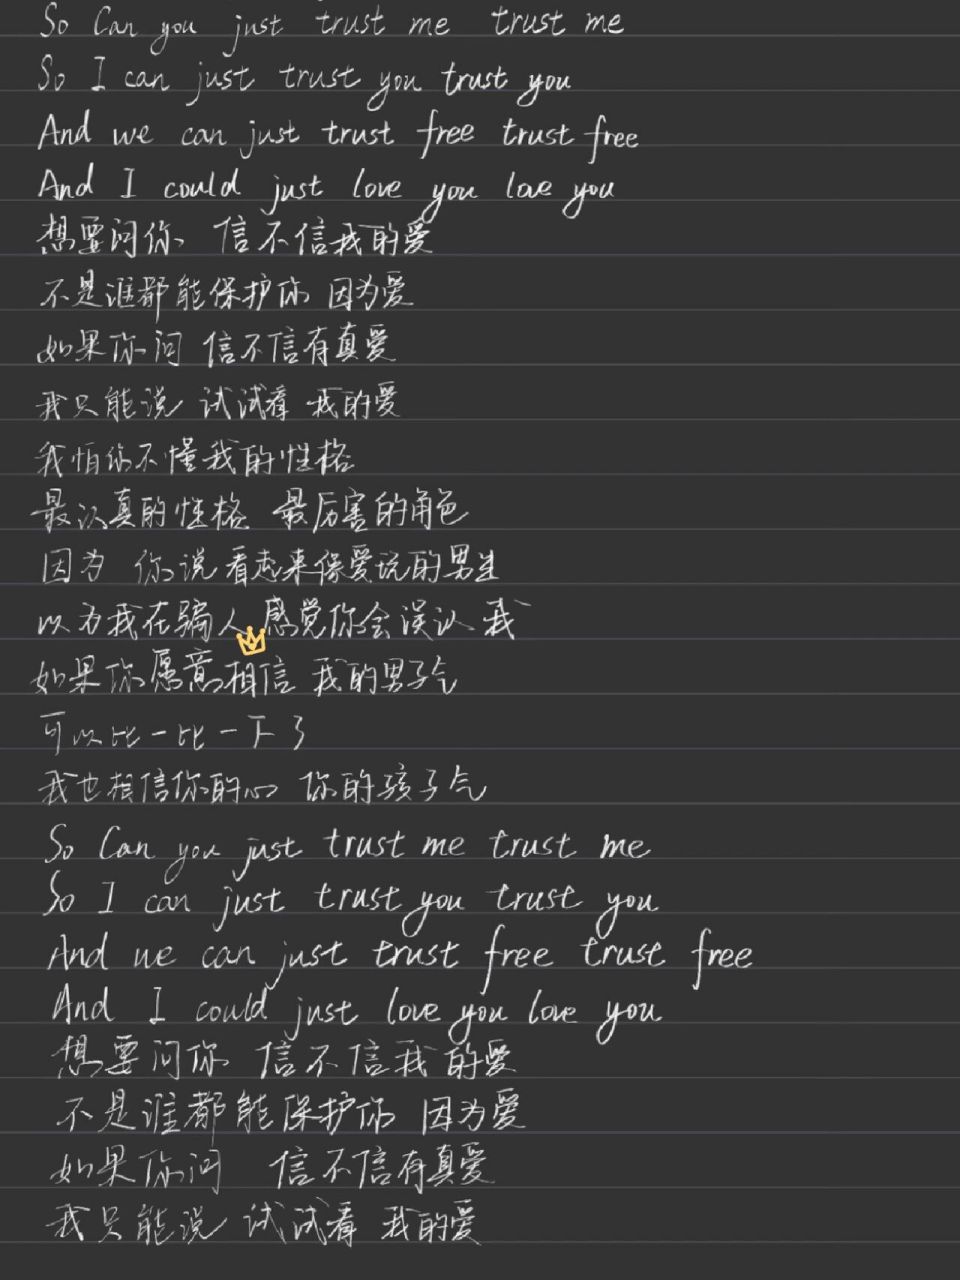 So Can you just trust me trust me
So I can just trust you trust you
And we can just trust free trust free
And I could just love you love you
想要问你 信不信我的爱
不是谁都能保护你 因为爱
如果你问 信不信有真爱
我只能说 试试看 我的爱
我怕你不懂我的性格
最认真的性格 最厉害的角色
因为 你说看起来像爱玩的男生
以为我在骗人 感觉你会误认我
如果你愿意相信 我的男子气
可以比一比一下了
我也相信你的心 你的孩子气
So Can you just trust me trust me
So I can just trust you trust you
And we can just trust free trust free
And I could just love you love you
想要问你 信不信我的爱
不是谁都能保护你 因为爱
如果你问 信不信有真爱
我只能说 试试看 我的爱